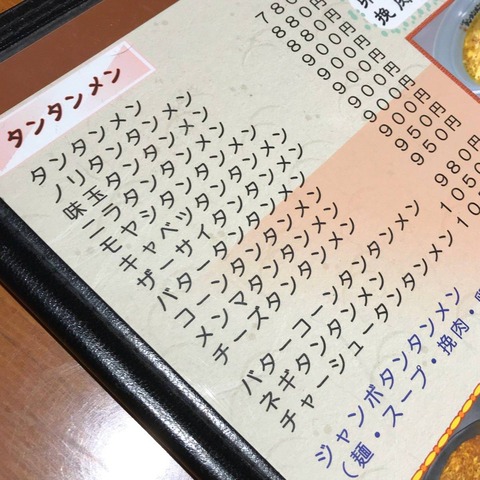 タンタンメン
タンタンメン
ノリタンタンメン
味玉タンタンメン
ニラタンタンメン
モヤシタンタンメン
キャベツタンタンメン
ザーサイタンタンメン
バタータンタンメン
コーンタンタンメン
メンマタンタンメン
チーズタンタンメン
バターコーンタンタンメン
ネギタンタンメン
チャーシュータンタンメン
ジャンボタンタンメン
(麺・スープ・挽肉・
780
880円
880円
900円
900円
900円
900円
900円
950円
950円
980円
1050
挽肉